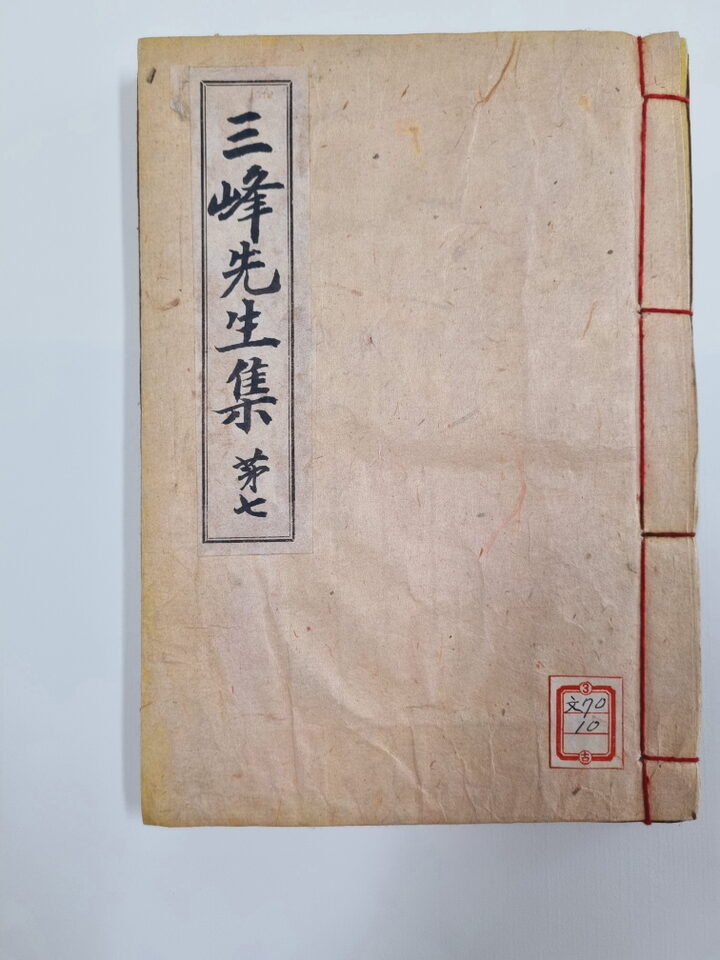 三峰先生集 苐七
3
文70
10
吉